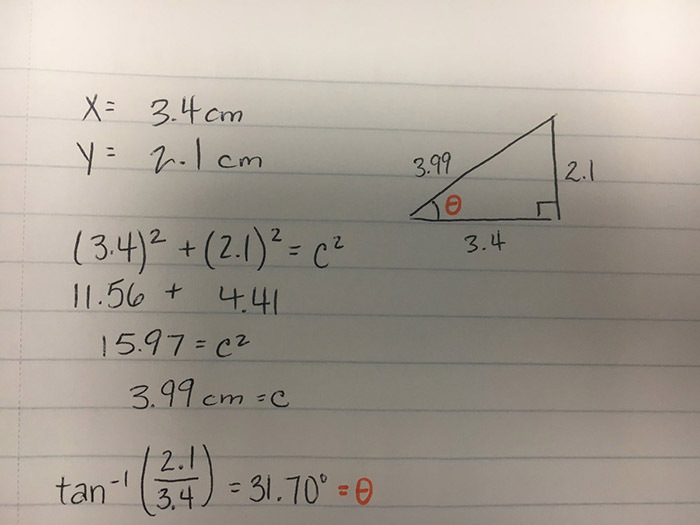 X= 3.4cm
Y= 2.1 cm
3.99
2.1
θ
3.4
(3.4)² + (2.1)² = c²
11.56 + 4.41
15.97 = c²
3.99 cm = c
tan⁻¹ (2.1/3.4) = 31.70° = θ